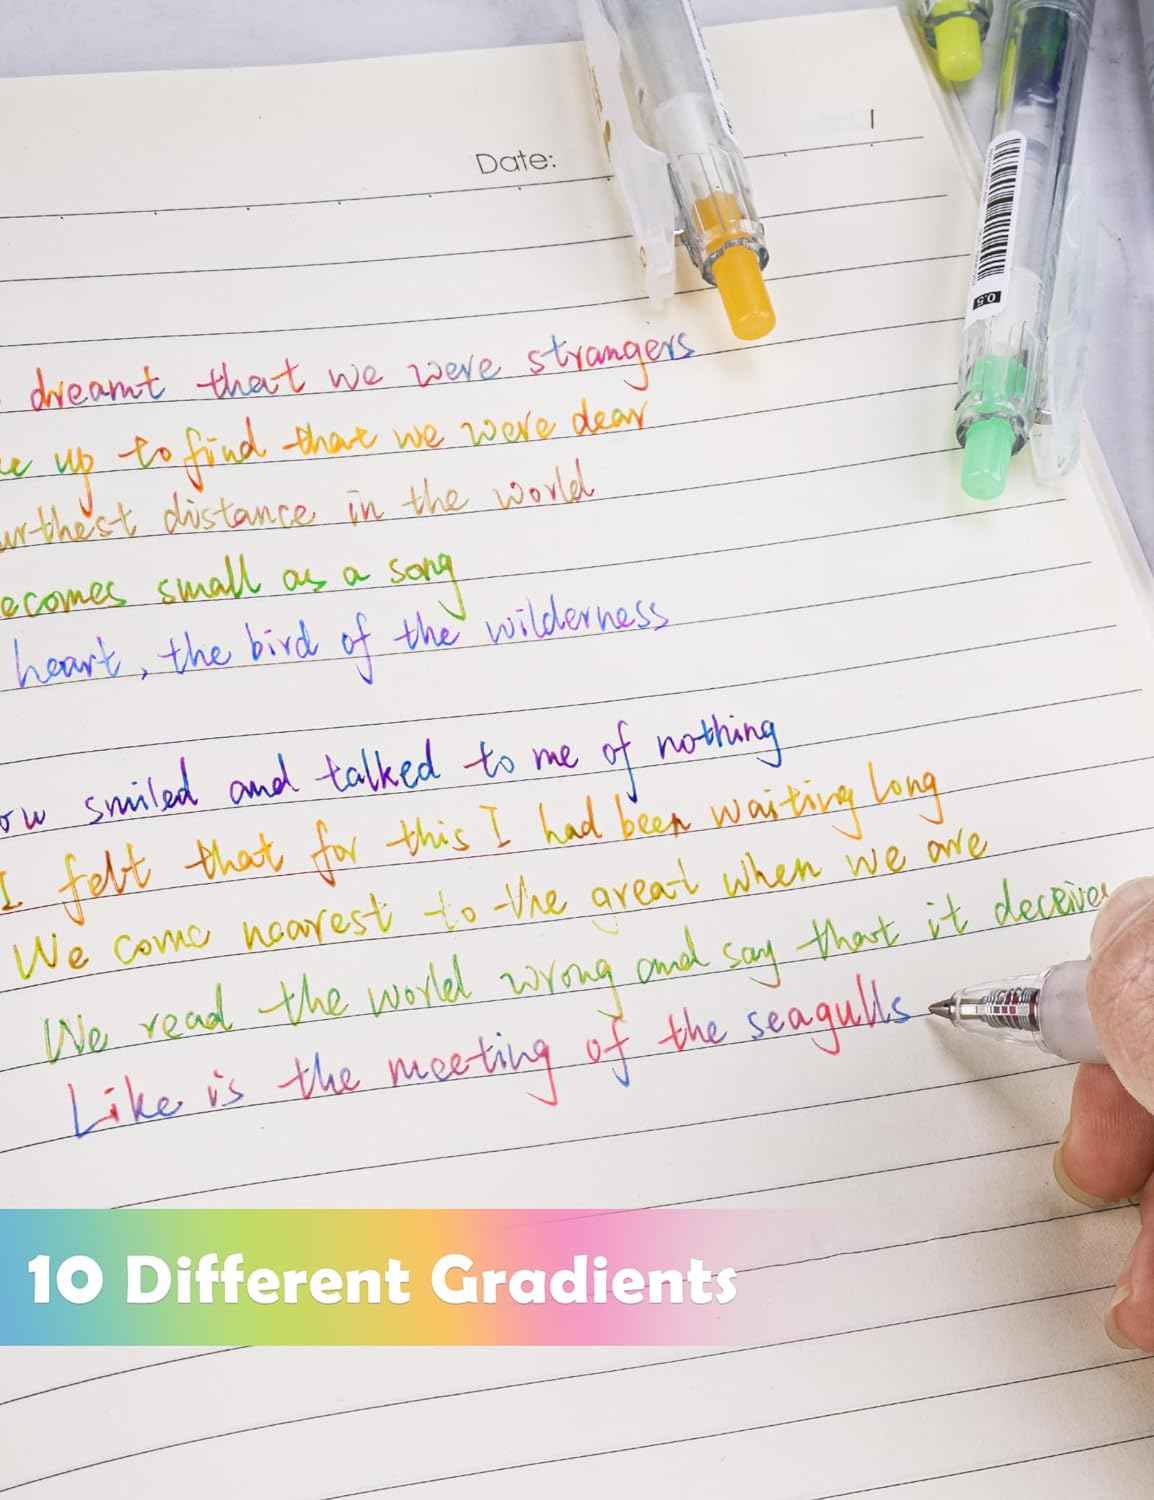 Date:
0.5
dreamt that we were strangers
up to find that we were dear
urthest distance in the world
ecomes small as a song
heart, the bird of the wilderness
ow smiled and talked to me of nothing
I felt that for this I had been waiting long
We come nearest to the great when we are
We read the world wrong and say that it deceives
Like is the meeting of the seagulls
10 Different Gradients